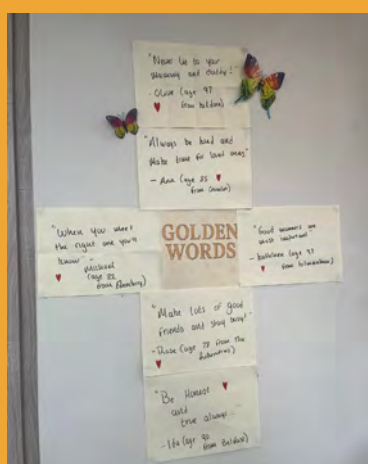 "Never lie to your
mammy and daddy!"
- Olive (age 97
from
"Always be kind and
make time for loved ones"
- Ann (age 85
from
"When you meet
the right one you'll
know" -
Michael
(age 82
from
GOLDEN
WORDS
"Good manners are
most important"
- Kathleen (age 97
from
"Make lots of good
friends and stay busy!"
- Rose (age 78 from The
"Be Honest
and
true always"
- Ita (age 90
from